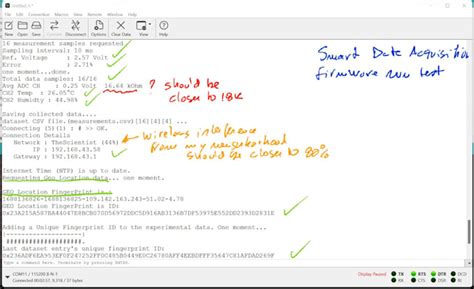 File Edit Connection Macro View Remote Window Help
New Open Save Connect Disconnect Clear Data Options View Hex Help
16 measurement samples requested
Sampling interval: 10 ms
Ref. Voltage : 2.57 Volt
Error : 2.71%
one moment...done.
Total data samples: 16/16
Avg ADC CH : 0.25 Volt 16.64 kOhm
CH2 Temp : 26.05°C
CH2 Humidity : 44.98%
? should be
closer to 18K
Smart Data Acquisition
firmware run test
Saving collected data....
dataset CSV file.(measurements.csv)[16][4][8]...
Connecting (5) (1): # => OK.
Connection Details
Network : TheScientist (44%)
IP : 192.168.43.58
Gateway : 192.168.43.1
wireless interference
from my neighborhood
should be closer to 80%
Internet Time (NTP) is up to date.
Requesting Geo Location data... one moment.
GEO Location FingerPrint is...
GEO Location FingerPrint is ID:
Adding a Unique Fingerprint ID to the experimental data. One moment...
Last dataset entry's unique fingerprint ID:
Type a command here. Terminate by pressing ENTER.
COM11 / 115200 8-N-1
Display Paused
TX RTS DTR DCD
RX CTS DSR RI